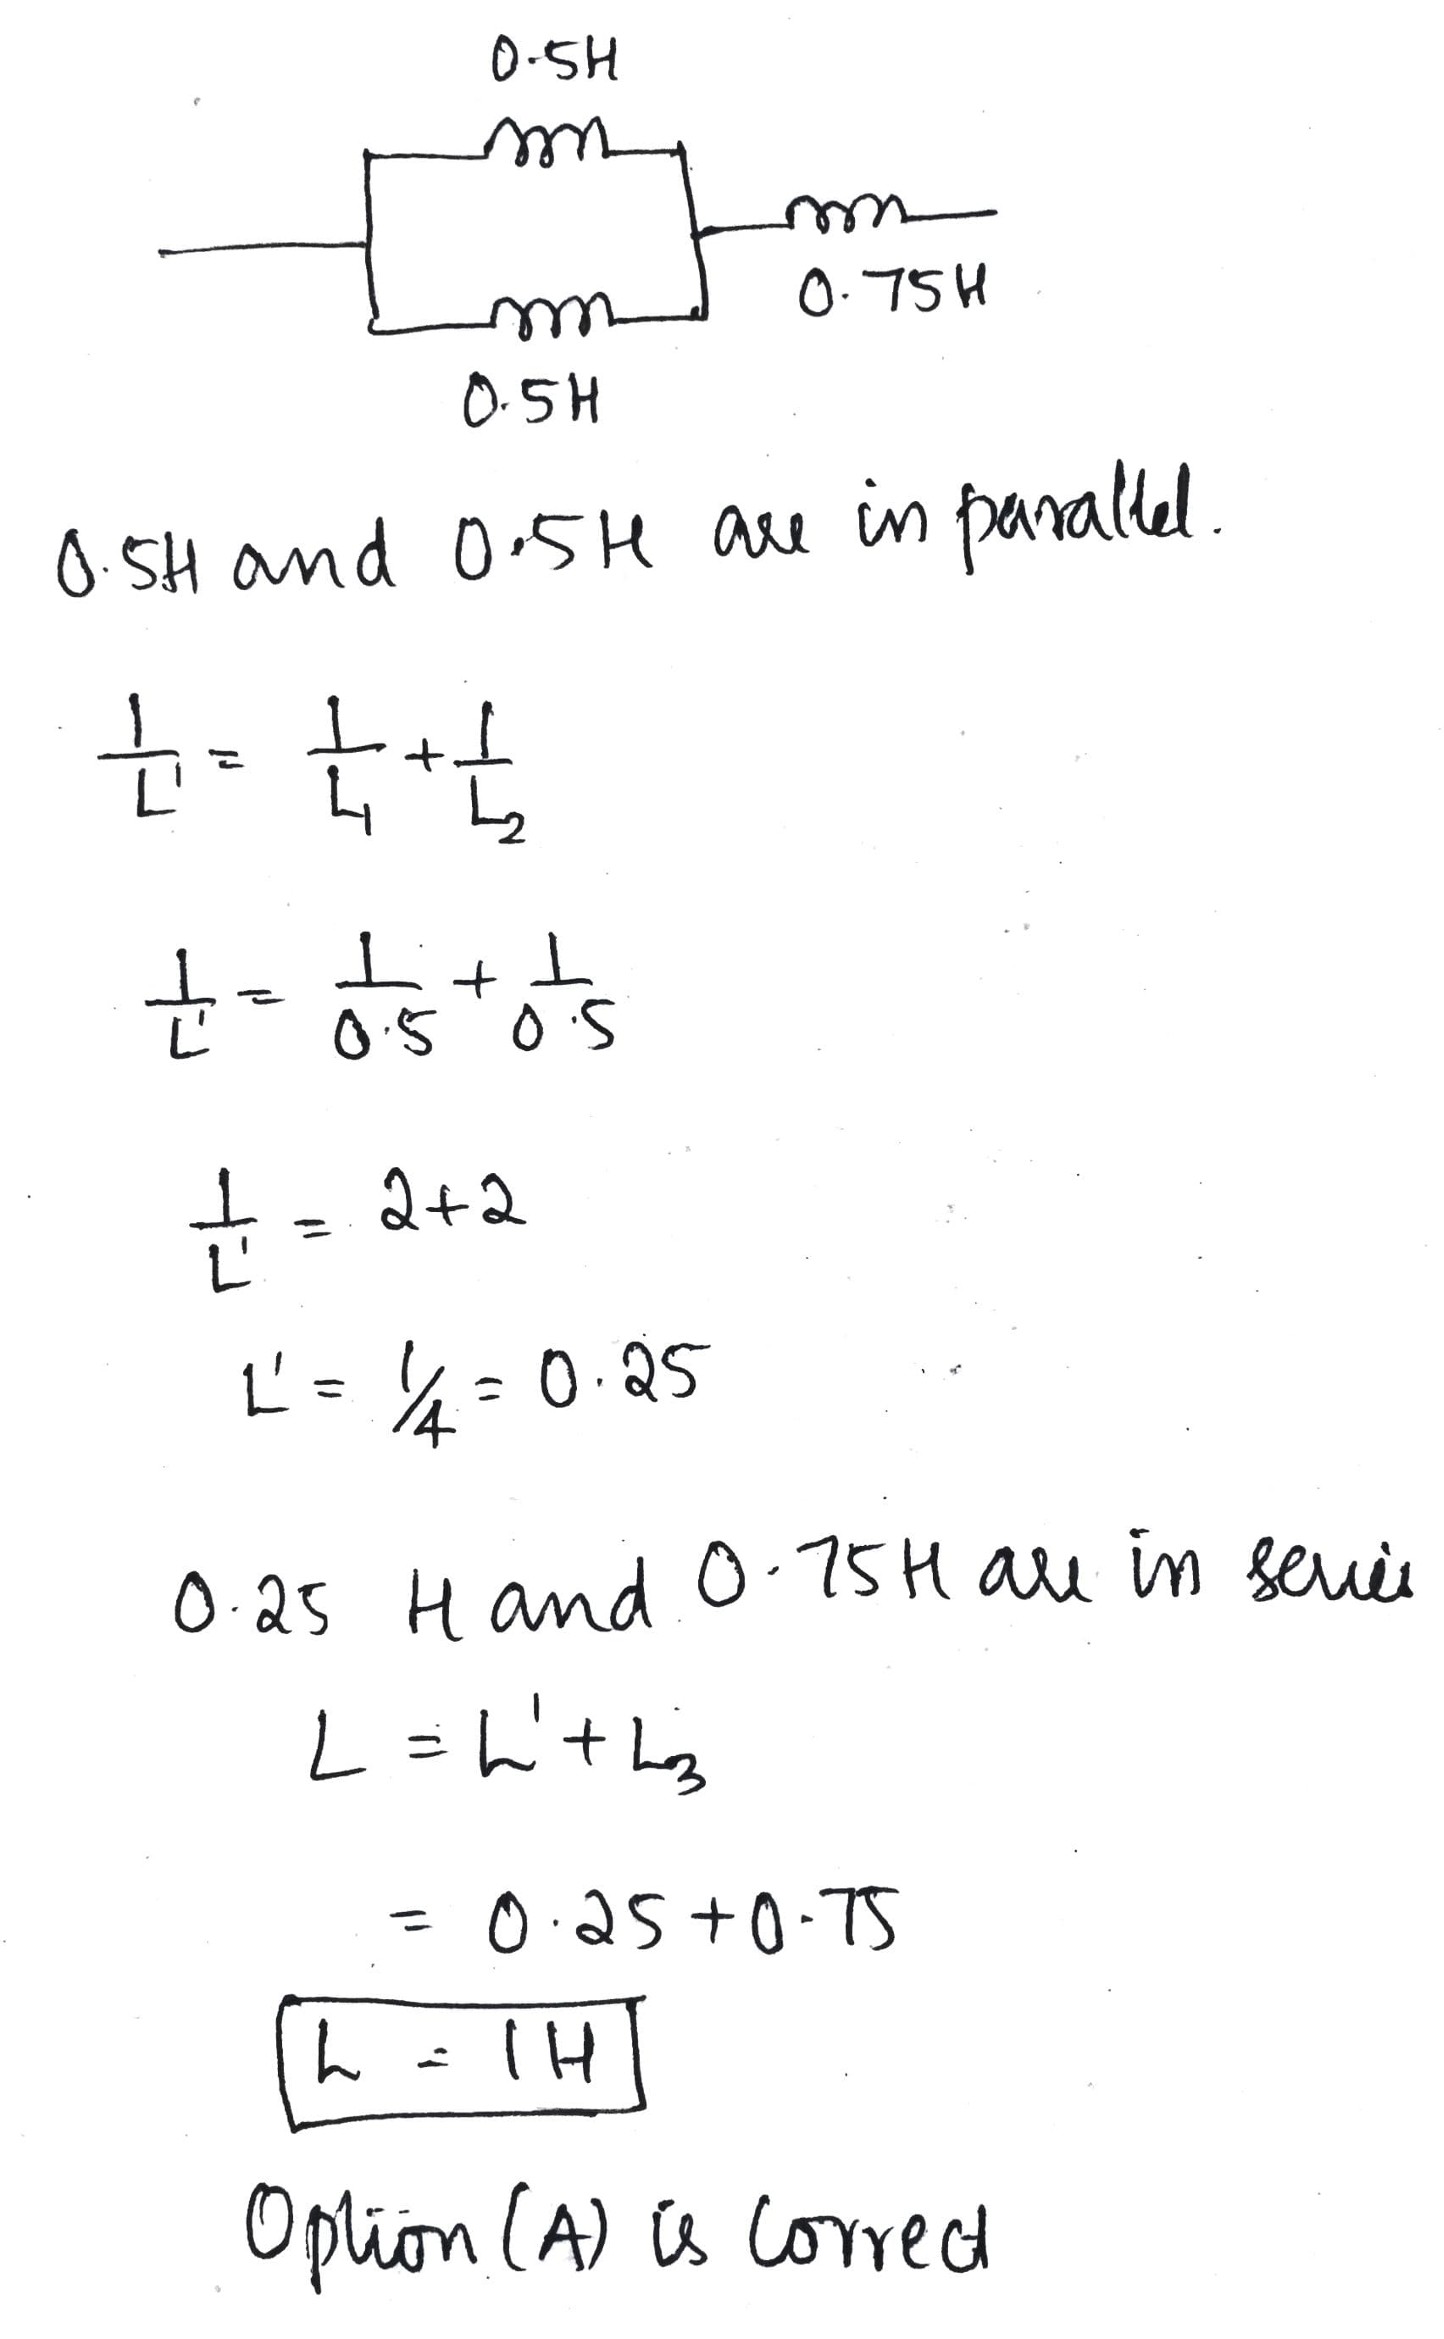 0.5H
0.75H
0.5H
0.5H and 0.5H are in parallel.
1/L' = 1/L₁ + 1/L₂
1/L' = 1/0.5 + 1/0.5
1/L' = 2+2
L' = 1/4 = 0.25
0.25 H and 0.75H are in series
L = L' + L₃
= 0.25 + 0.75
L = 1H
Option (A) is correct